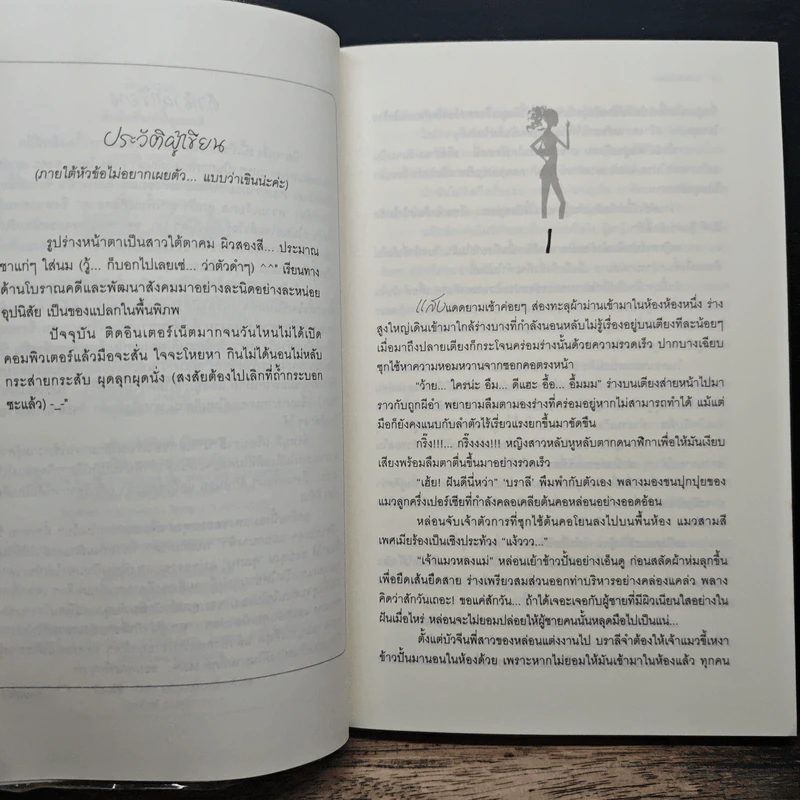 ประวัติผู้เขียน
(ภายใต้หัวข้อไม่อยากเผยตัว... แบบว่าเขินน่ะค่ะ)
รูปร่างหน้าตาเป็นสาวใต้ตาคม ผิวสองสี... ประมาณ
ชาแก่ๆ ใส่นม (วู้... ก็บอกไปเลยเซ่... ว่าตัวดำๆ) ^^" เรียนทาง
ด้านโบราณคดีและพัฒนาสังคมมาอย่างละนิดอย่างละหน่อย
อุปนิสัย เป็นของแปลกในพื้นพิภพ
ปัจจุบัน ติดอินเตอร์เน็ตมากจนวันไหนไม่ได้เปิด
คอมพิวเตอร์แล้วมือจะสั่น ใจจะโหยหา กินไม่ได้นอนไม่หลับ
กระส่ายกระสับ ผุดลุกผุดนั่ง (สงสัยต้องไปเลิกที่ถ้ำกระบอก
ซะแล้ว) -_-"
1
แสงแดดยามเช้าค่อยๆ ส่องทะลุผ้าม่านเข้ามาในห้องห้องหนึ่ง ร่าง
สูงใหญ่เดินเข้ามาใกล้ร่างบางที่กำลังนอนหลับไม่รู้เรื่องอยู่บนเตียงทีละน้อยๆ
เมื่อมาถึงปลายเตียงก็กระโจนคร่อมร่างนั้นด้วยความรวดเร็ว ปากบางเฉียบ
ซุกไซ้หาความหอมหวานจากซอกคอตรงหน้า
"ว้าย... ใครน่ะ อืม... ดีแฮะ อื้อ... อื๊มมม" ร่างบนเตียงส่ายหน้าไปมา
ราวกับถูกผีอำ พยายามลืมตามองร่างที่คร่อมอยู่หากไม่สามารถทำได้ แม้แต่
มือก็ยังคงแนบกับลำตัวไร้เรี่ยวแรงยกขึ้นมาขัดขืน
กริ๊ง!!!... กริ๊งงงง!!! หญิงสาวหลับหูหลับตากดนาฬิกาเพื่อให้มันเงียบ
เสียงพร้อมลืมตาตื่นขึ้นมาอย่างรวดเร็ว
"เฮ้ย! ฝันดีนี่หว่า" 'บราลี' พึมพำกับตัวเอง พลางมองขนปุกปุยของ
แมวลูกครึ่งเปอร์เซียที่กำลังคลอเคลียต้นคอหล่อนอย่างออดอ้อน
หล่อนจับเจ้าตัวการที่ซุกไซ้ต้นคอโยนลงไปบนพื้นห้อง แมวสามสี
เพศเมียร้องเป็นเชิงประท้วง "แง้ววว..."
"เจ้าแมวหลงแม่" หล่อนเย้าข้าวปั้นอย่างเอ็นดู ก่อนสลัดผ้าห่มลุกขึ้น
เพื่อยืดเส้นยืดสาย ร่างเพรียวสมส่วนออกท่าบริหารอย่างคล่องแคล่ว พลาง
คิดว่าสักวันเถอะ! ขอแค่สักวัน... ถ้าได้เจอะเจอกับผู้ชายที่มีผิวเนียนใสอย่างใน
ฝันเมื่อไหร่ หล่อนจะไม่ยอมปล่อยให้ผู้ชายคนนั้นหลุดมือไปเป็นแน่...
ตั้งแต่บัวจีนพี่สาวของหล่อนแต่งงานไป บราลีจำต้องให้เจ้าแมวขี้เหงา
ข้าวปั้นมานอนในห้องด้วย เพราะหากไม่ยอมให้มันเข้ามาในห้องแล้ว ทุกคน